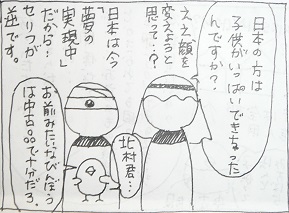 日本の方は
子供がいっぱいできなった
んですか?
ええ顔を
変えようと
思って…?
「日本は今
夢の
実現中」
だから…
セリフが
逆です。
北村君…
お前みたいなびんぼう
は中古品で十分だろ。